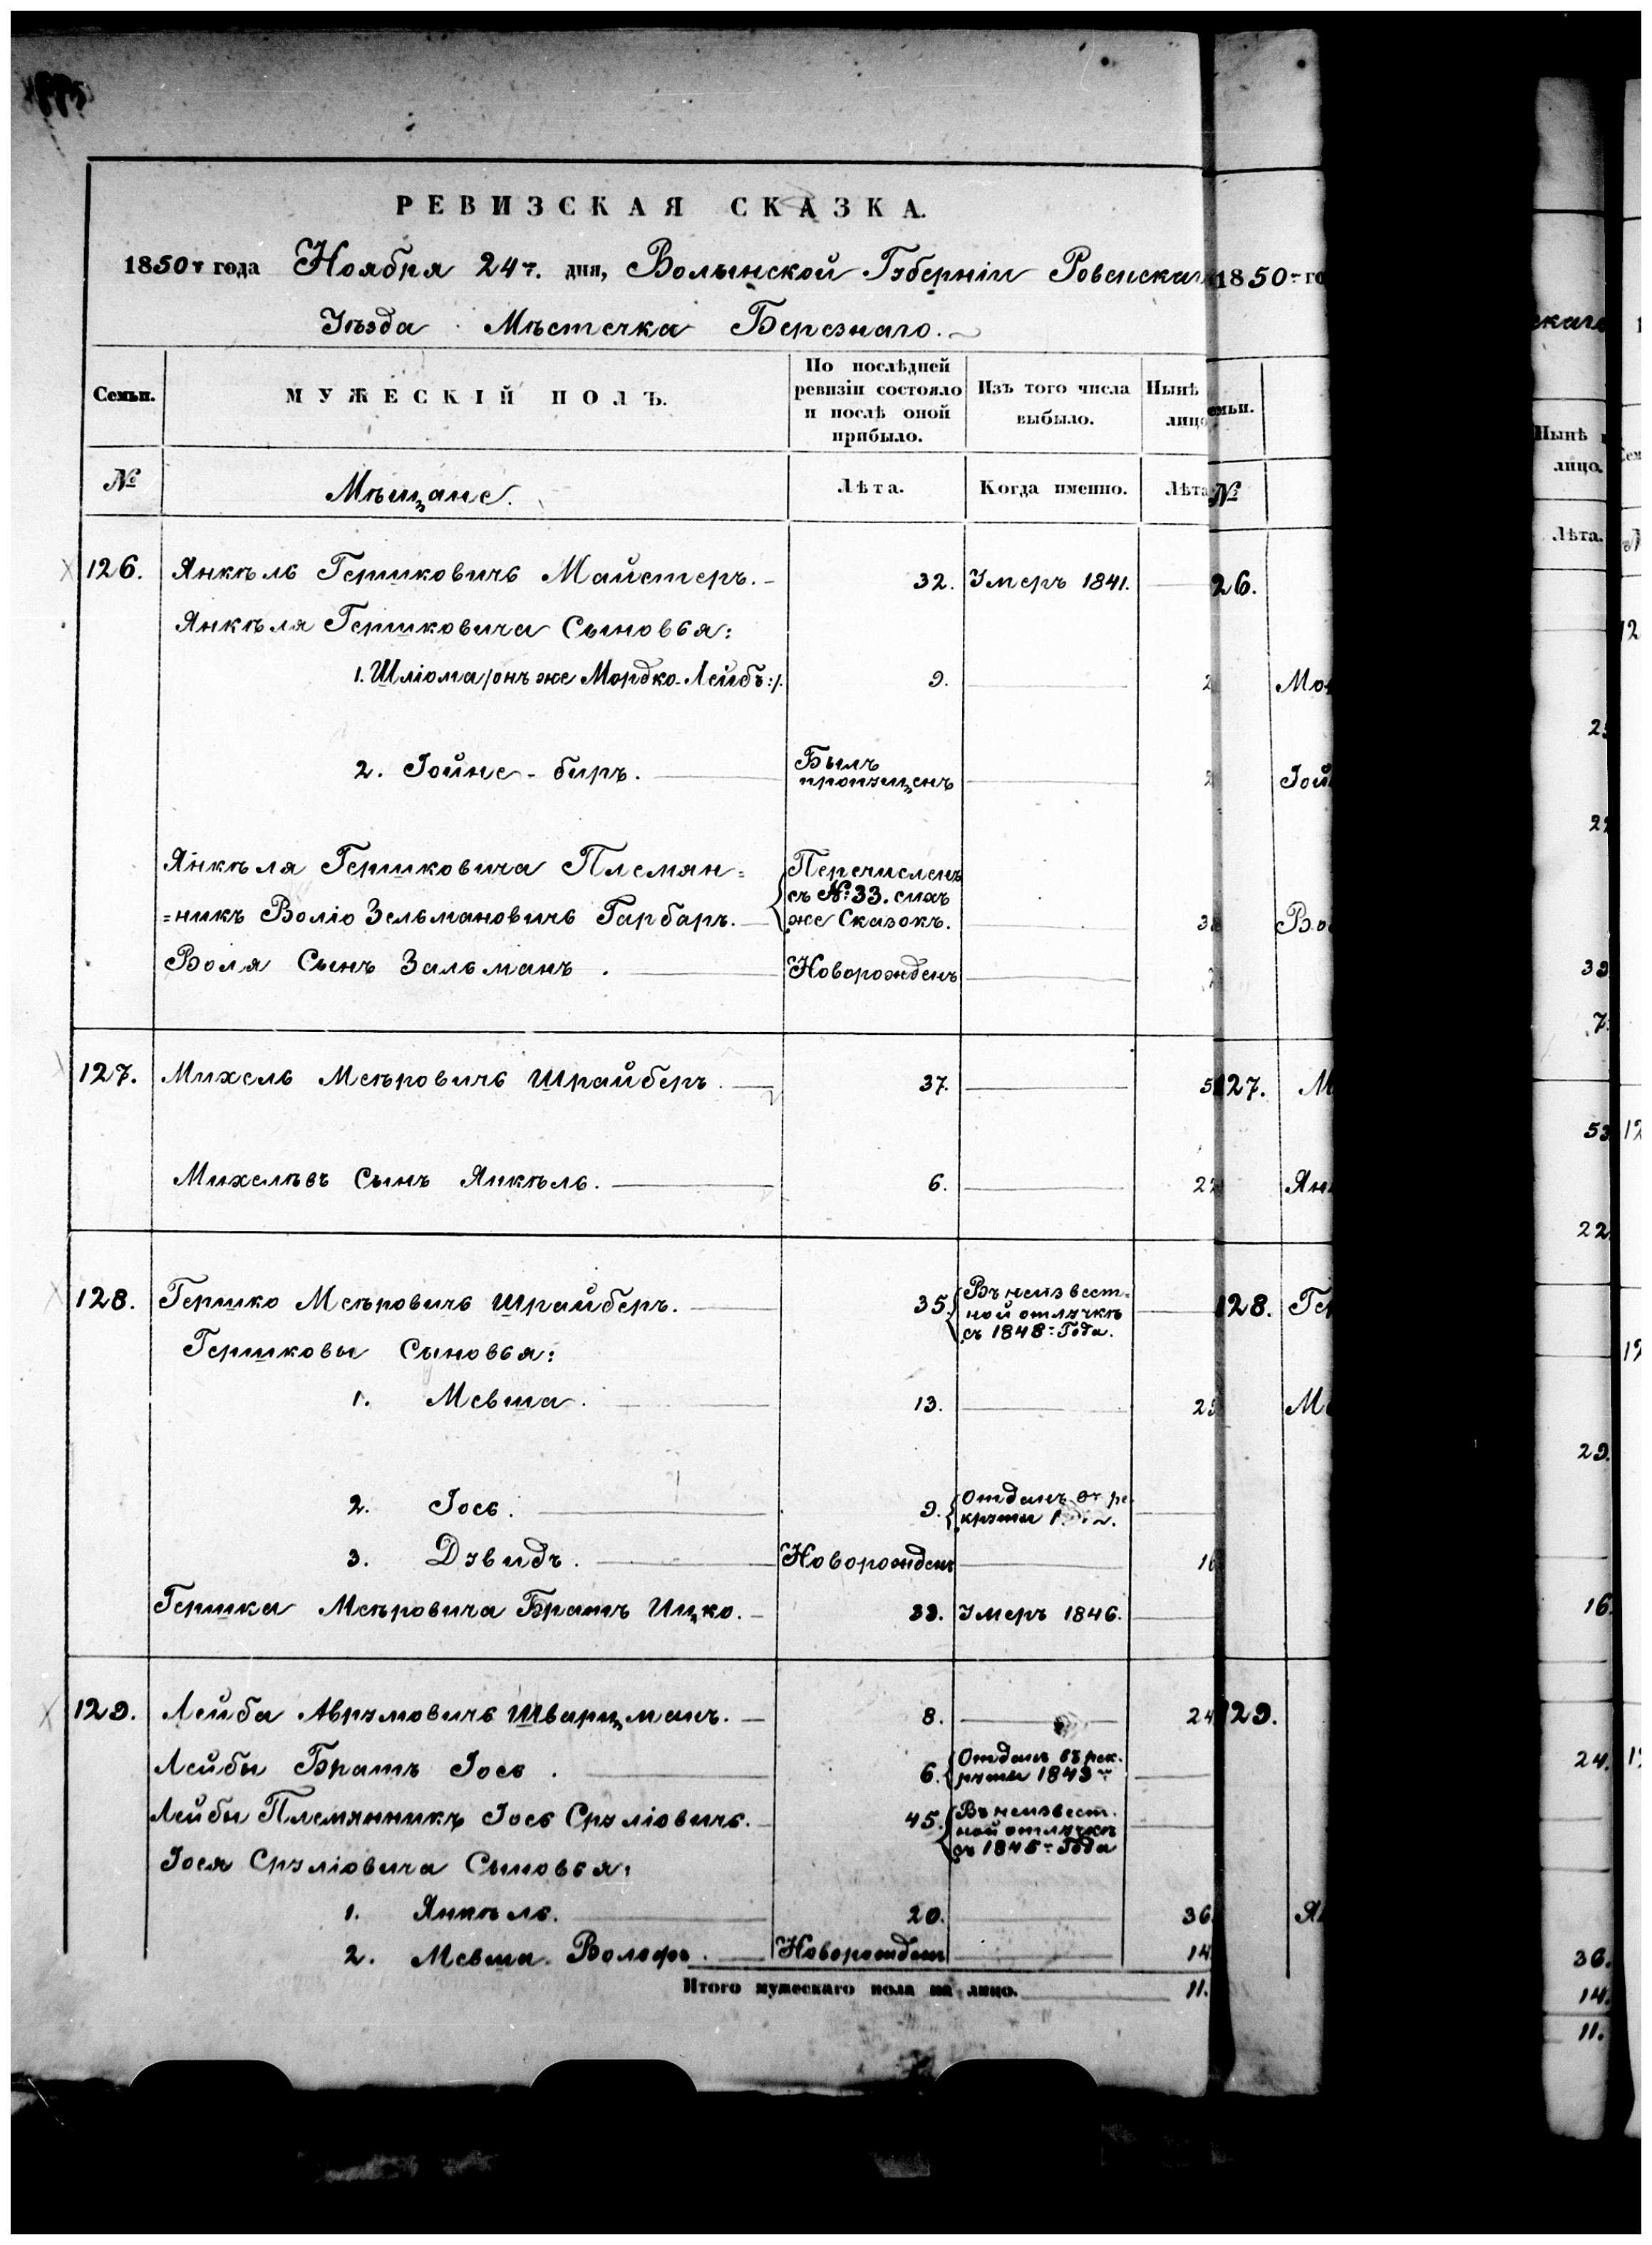 РЕВИЗСКАЯ СКАЗКА.
1850г года Ноября 24г. дня, Волынской Губерніи Ровенскаг
Уѣзда Мѣстечка Березнаго.
Семьи. МУЖЕСКІЙ ПОЛЪ. По послѣдней ревизіи состояло и послѣ оной прибыло. Изъ того числа выбыло. Нынѣ лицо
№ Мѣщане. Лѣта. Когда именно. Лѣта
126. Янкѣль Гершковичь Майстеръ. 32. Умеръ 1841.
Янкѣля Гершковича Сыновья:
1. Шліома /онъ же Мордко-Лейбъ:/. 9.
2. Іойне-биръ. Былъ пропущенъ
Янкѣля Гершковича Племян= Перечисленъ
съ №: 33. сихъ
=никъ Воліо Зельмановичь Гарбаръ. же Сказокъ.
Воля Сынъ Зальманъ. Новорожденъ
127. Михель Меѣровичь Шрайберъ. 37. 5
Михелѣвъ Сынъ Янкѣль. 6. 22
128. Гершко Меѣровичь Шрайберъ. 35. Въ неизвест-
ной отлучкѣ
съ 1848-Года.
Гершковы Сыновья:
1. Мевша. 13. 2
2. Іось. 9. Отданъ въ ре-
круты
3. Дувидъ. Новорожден 16
Гершка Меѣровича Братъ Ицко. 33. Умеръ 1846.
129. Лейба Аврумовичь Шварцманъ. 8. 24
Лейбы Братъ Іось. 6. Отданъ въ рек-
руты 1849
Лейбы Племянникъ Іось Сруліовичь. 45. Въ неизвест-
ной отлучкѣ
съ 1846-Года
Іося Сруліовича Сыновья:
1. Янкѣль. 20. 36.
2. Мевша. Вольфъ. Новорожден 14
Итого мужескаго пола на лицо. 11.
1850-го
емьи.
№
26.
Мо
Іой
Во
127. М
Ян
128. Ге
Ме
129.
Ян
скаго
Нынѣ
лицо.
Лѣта.
39
7.
53
22.
29.
16.
24.
36.
14.
11.